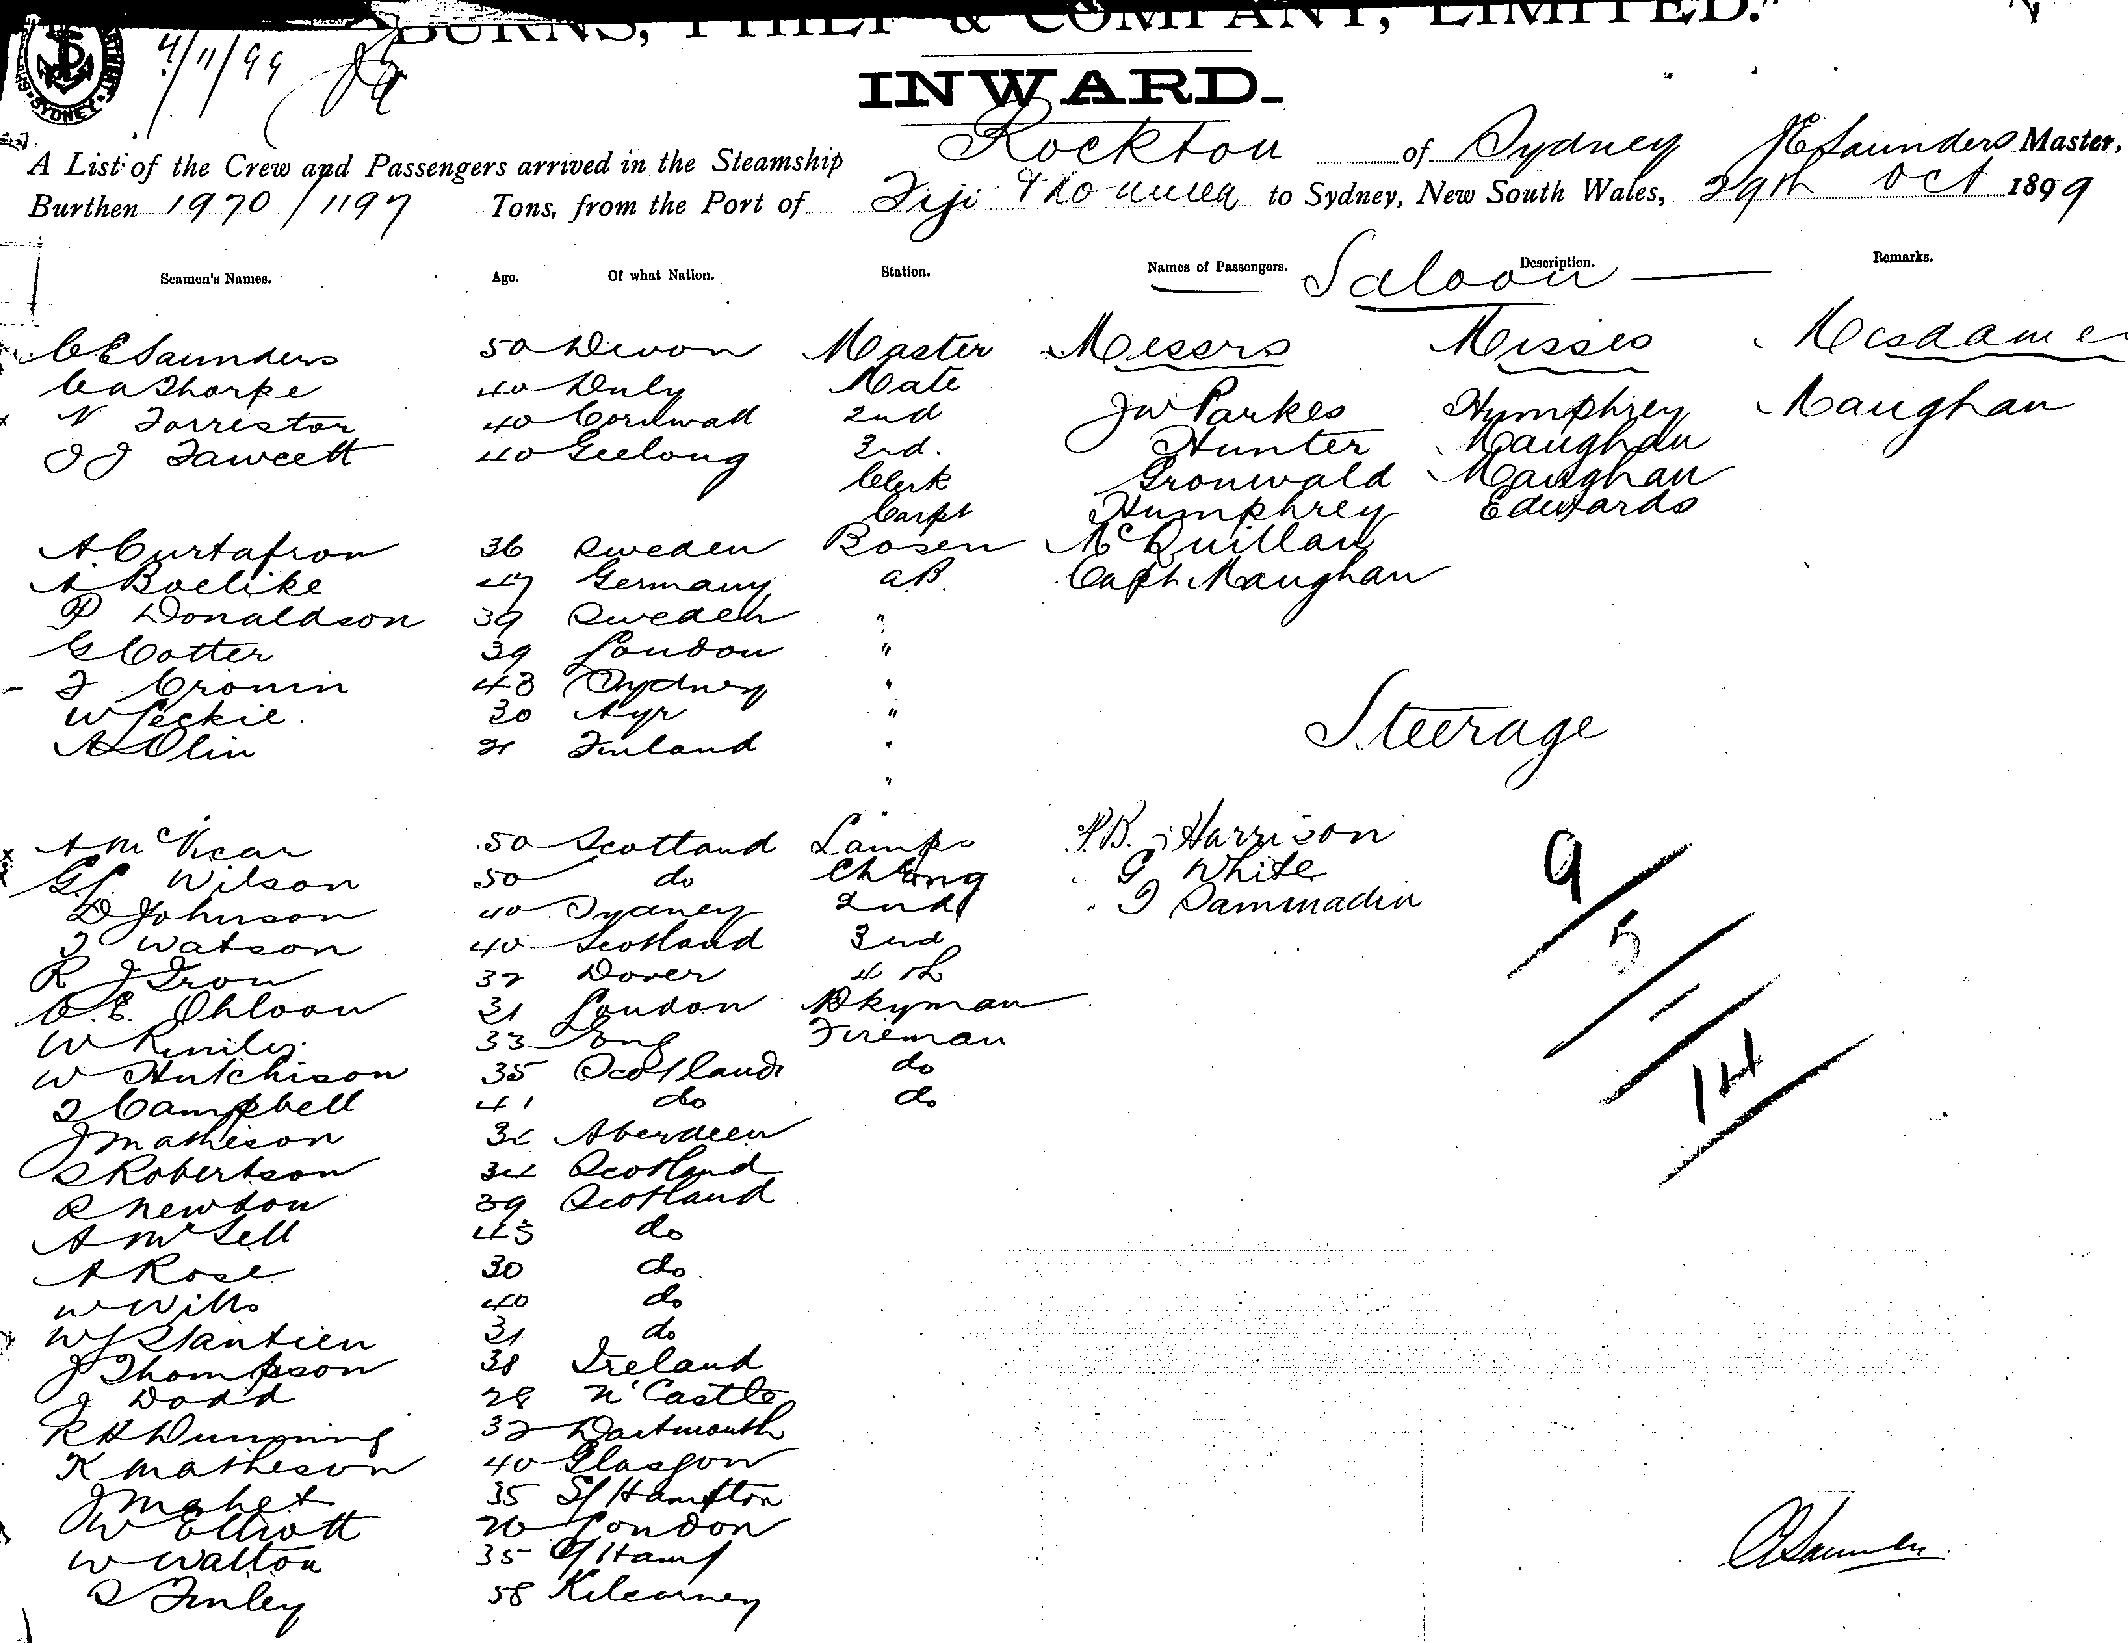 BURNS, PHILP & COMPANY, LIMITED.
SYDNEY
4/11/99
INWARD.
A List of the Crew and Passengers arrived in the Steamship Rockton of Sydney CE Saunders Master,
Burthen 1970/1197 Tons, from the Port of Fiji & Noumea to Sydney, New South Wales, 29th Oct 1899
Seamen's Names. Age. Of what Nation. Station. Names of Passengers. Description. Remarks.
Saloon
CE Saunders 50 Devon Master Messrs Misses Mesdames
CA Thorpe 40 Mate
N Forrester 40 Cornwall 2nd JW Parkes Humphrey Maughan
J J Fawcett 40 Geelong 3rd. Hunter Maughan
Clerk Gronwald Maughan
Carpt Humphrey Edwards
A 36 Sweden Bosen McQuillan
A Boelike 47 Germany AB Capt Maughan
P Donaldson 39 Sweden "
G Cotter 39 London "
J Cronin 43 Sydney "
W Leckie. 30 Ayr "
A Olin 21 Finland "
"
Steerage
A McVicar 50 Scotland Lamps P.B. Harrison
G.L. Wilson 50 do Ch Eng G White
D Johnson 40 Sydney 2nd J Sammadin
J Watson 40 Scotland 3rd
R J Iron 32 Dover 4th
C.E. Ohloon 31 London Dkyman
W 33 Eng Fireman
W Hutchison 35 Scotland do
J Campbell 41 do do
J Matheson 34 Aberdeen
S Robertson 34 Scotland
R Newton 39 Scotland
A McSell 43 do
A Rose 30 do
W Wills 40 do
W J 31 do
J Thompson 38 Ireland
J Dodd 28 N'Castle
R H Dunning 32 Dartmouth
K Matheson 40 Glasgow
J Mahet 35 S/Hampton
W Elliott 20 London
W Walton 35 S/Hamp
S Finley 58 Kilearney
9
5
14
CE Saunders